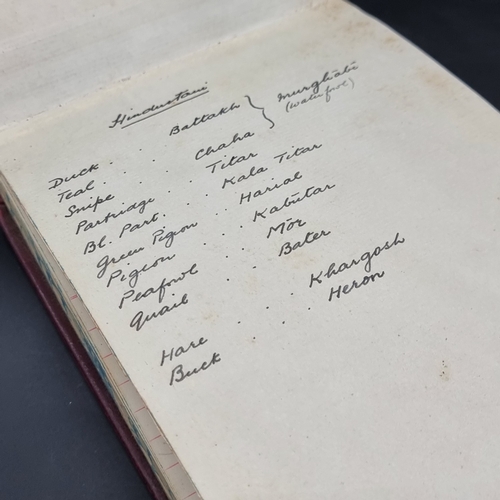 Hindustani
Duck . . Battakh } Murghābi
Teal . (waterfowl)
Snipe . . Chaha
Partridge . . Titar
Bl. Part. . . Kala Titar
Green Pigeon . . Harial
Pigeon . . . Kabūtar
Peafowl . . Mōr
Quail . . . Bater
Hare . . . Khargosh
Buck . . Heron